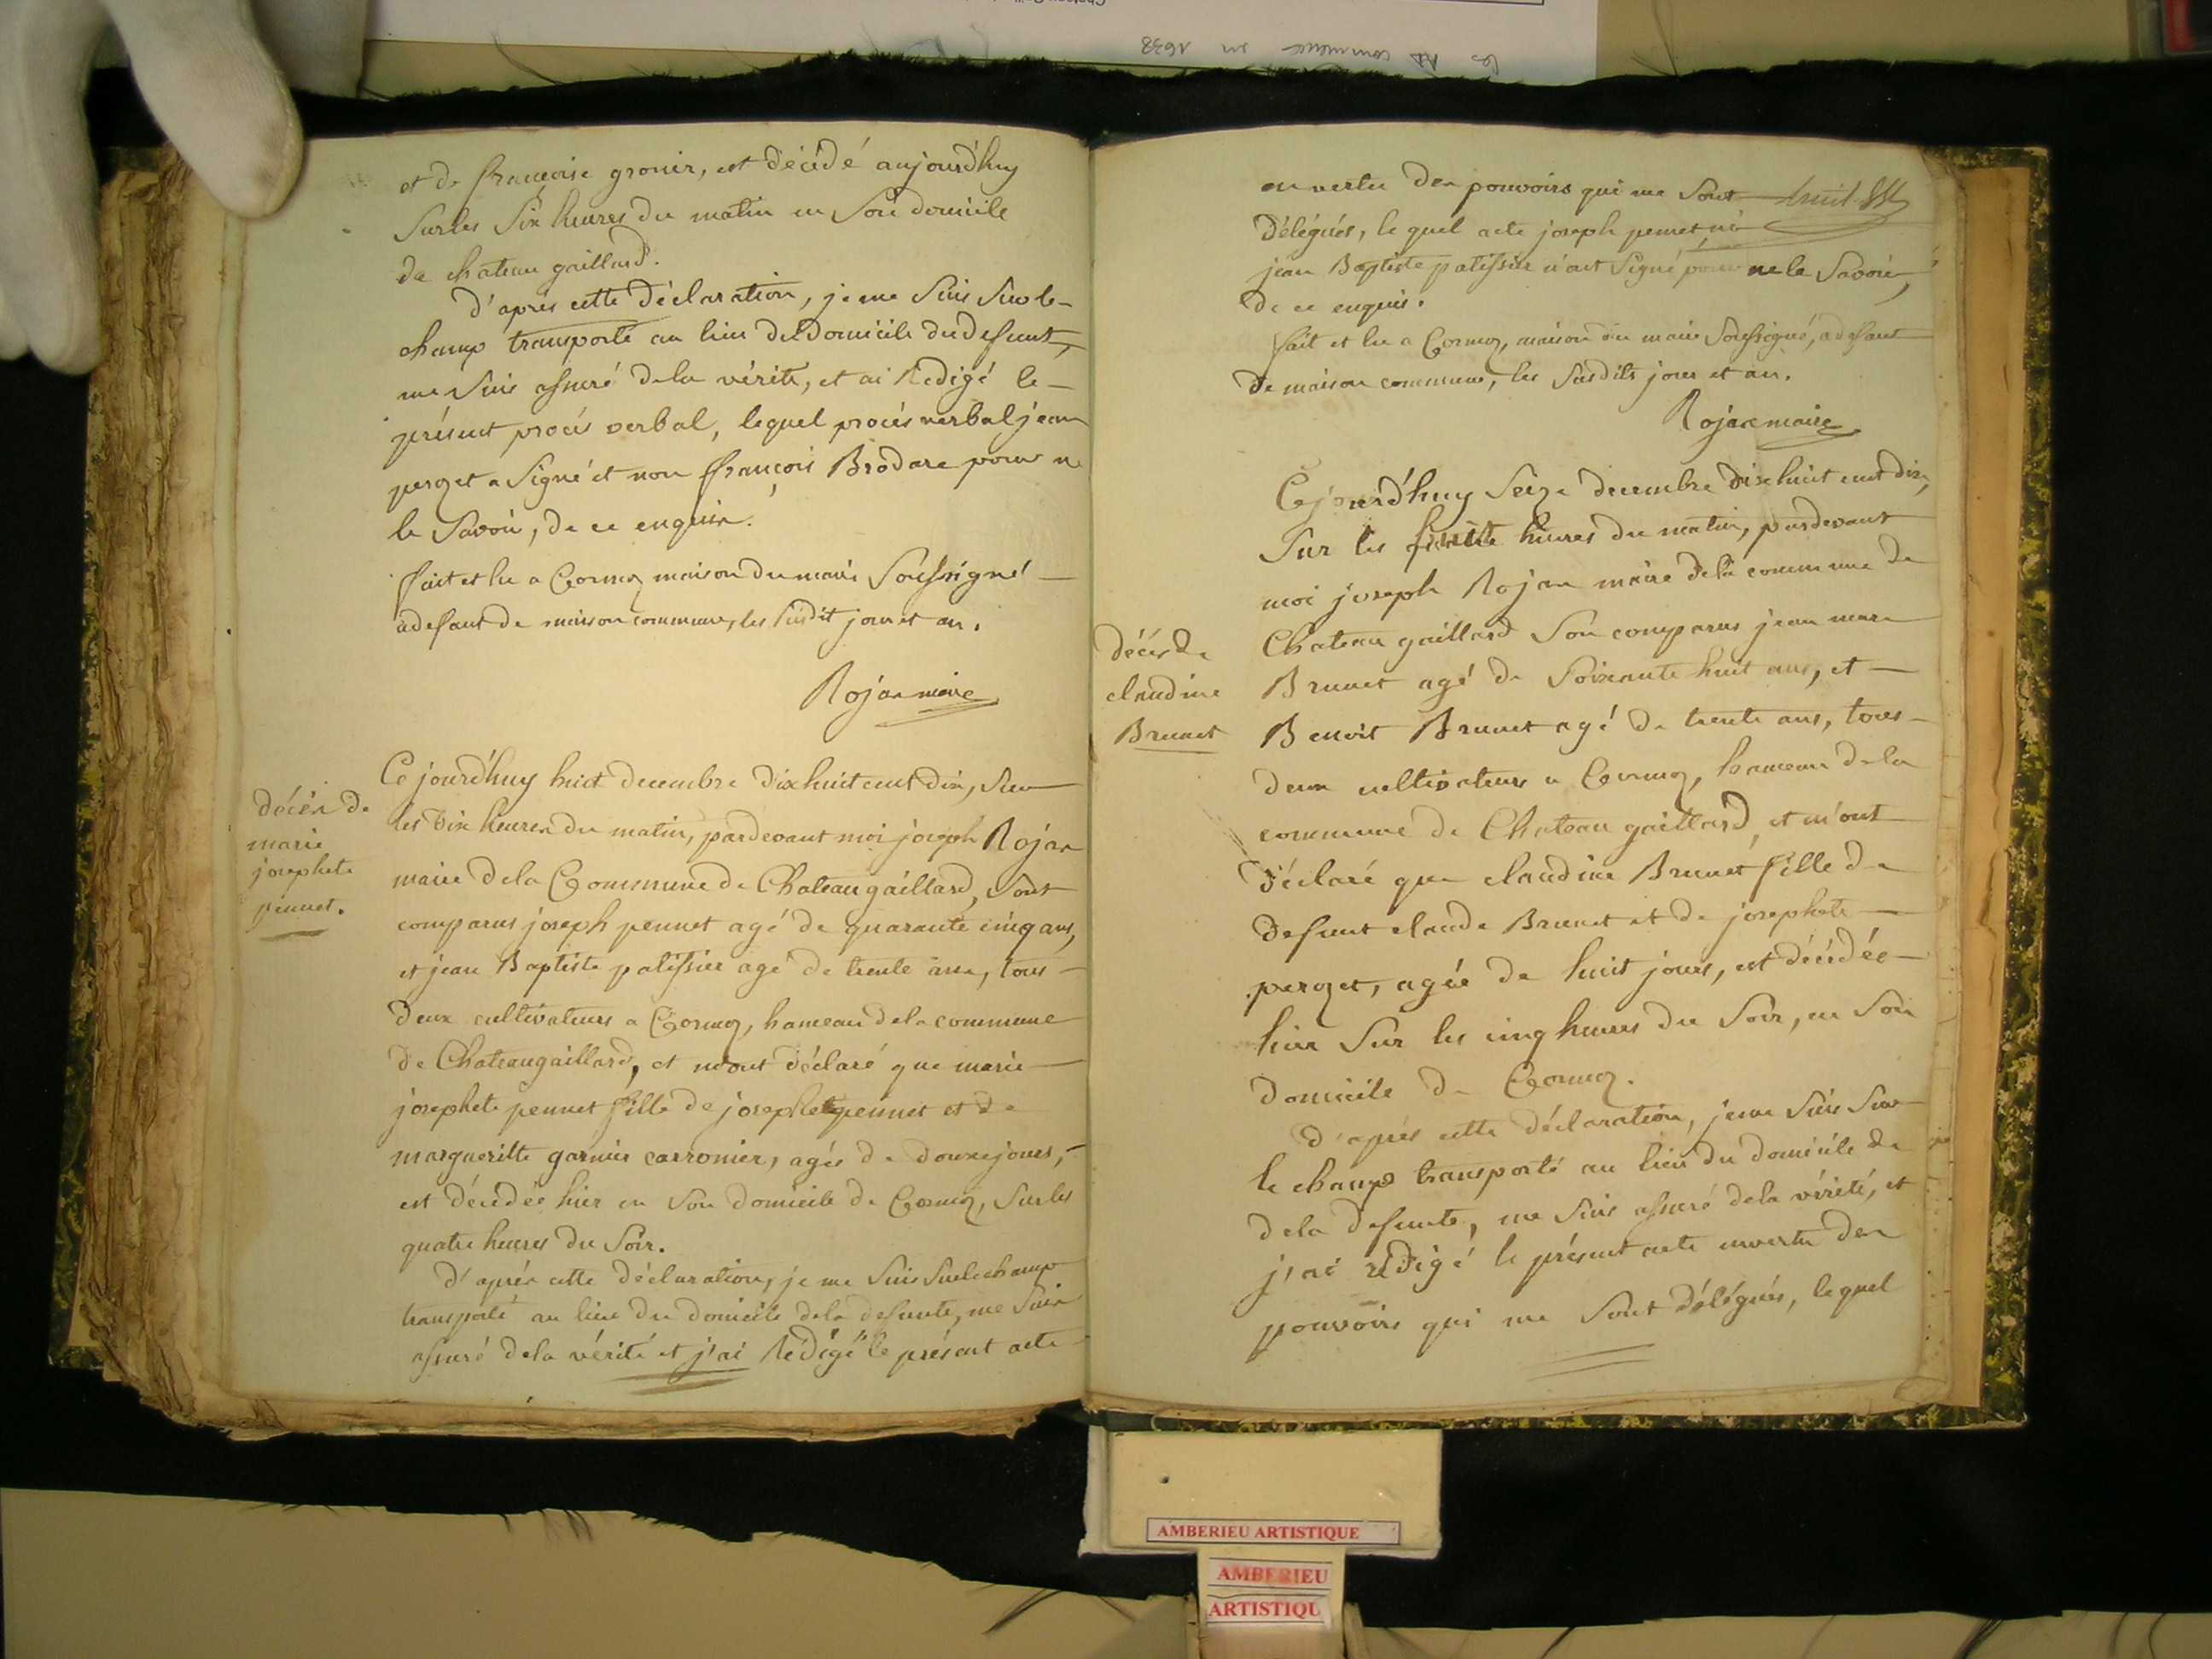 et de françoise gronier, est décédé aujourd'huy
Sur les Six heures du matin en Son domicile
de chateau gaillard.
d'après cette Déclaration, je me Suis Sur le
champ transporté au lieu del Domicile du defunt,
me Suis assuré dela vérité, et ai Redigé le
présent procès verbal, lequel procès verbal jean
perozet a Signé et non françois Brodare pour ne
le Savoir, de ce enquis.
fait et lu a Cormoz maison du maire Soussigné
a defaut de maison commune, les Susdit jour et an.
Rojas maire
décès de
marie
josephete
pennet.
Ce jourd'huy huit decembre dix huit cent dix, Sur
les Dix heures du matin, pardevant moi joseph Rojas
maire dela Commune de Chateaugaillard, Sont
comparus joseph pennet agé de quarante cinq ans,
et jean Baptiste patissier agé de trente ans, tous
deux cultivateurs a Cormoz, hameau dela commune
de Chateaugaillard, et m'ont déclaré que marie
josephete pennet fille de joseph pennet et de
margueritte garnier carronier, agée de douze jours,
est décédée hier en Son domicile de Cormoz, Sur les
quatre heures du Soir.
d'après cette déclaration, je me Suis Surlechamp
transporté au lieu du domicile dela defunte, me Suis
assuré dela vérité et j'ai Rédigé le présent acte
en vertu des pouvoirs qui me Sont
délégués, le quel acte joseph pennet, ni
jean Baptiste patissier n'ont Signé pour ne le Savoir,
de ce enquis.
fait et lu a Cormoz, maison du maire Soussigné, a defaut
de maison commune, les Susdits jour et an.
Rojas maire
décès de
claudine
Brunet
Ce jourd'huy Seize decembre dix huit cent dix,
Sur les huit heures du matin, pardevant
moi joseph Rojas maire dela commune de
Chateau gaillard Son comparus jean marie
Brunet agé de Soixante huit ans, et
Benoit Brunet agé de trente ans, tous
deux cultivateurs a Cormoz, hameau dela
commune de Chateau gaillard, et m'ont
déclaré que claudine Brunet fille de
defunt claude Brunet et de josephete
perozet, agée de huit jours, est décédée
hier Sur les cinq heures du Soir, en Son
domicile de Cormoz.
d'après cette déclaration, je me Suis Sur
le champ transporté au lieu du domicile de
dela defunte, me Suis assuré dela vérité, et
j'ai rédigé le présent acte en vertu des
pouvoirs qui me Sont délégués, lequel
AMBERIEU ARTISTIQUE
AMBERIEU
ARTISTIQU